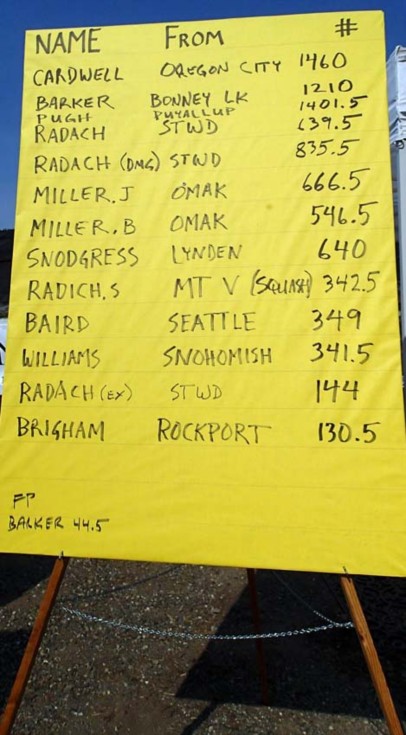 NAME FROM #
CARDWELL OREGON CITY 1460
BARKER BONNEY LK 1210
PUGH PUYALLUP 1401.5
RADACH STWD 639.5
RADACH (DMG) STWD 835.5
MILLER, J OMAK 666.5
MILLER, B OMAK 546.5
SNODGRESS LYNDEN 640
RADICH, S MT V (SQUASH) 342.5
BAIRD SEATTLE 349
WILLIAMS SNOHOMISH 341.5
RADACH (EX) STWD 144
BRIGHAM ROCKPORT 130.5
FP
BARKER 44.5